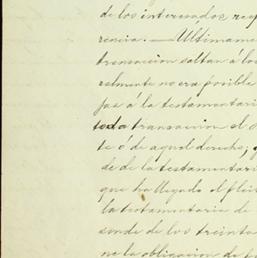 de los interesados resp
rencia. — Ultimame
transacion saltan á los
ralmente no era posible
jas á la testamentari
toda transacion el d
te ó de aquel derecho;
de de la testamentari
que ha llegado el
la testamentaria de
de los treinta
la obligacion de